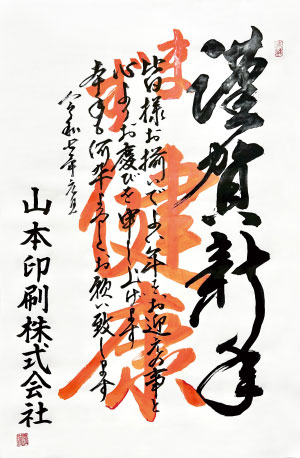 謹賀新年
健康
皆様お揃いでよい年をお迎えの事と
心よりお慶びを申し上げます
本年も何卒よろしくお願い致します
令和七年元旦
山本印刷株式会社